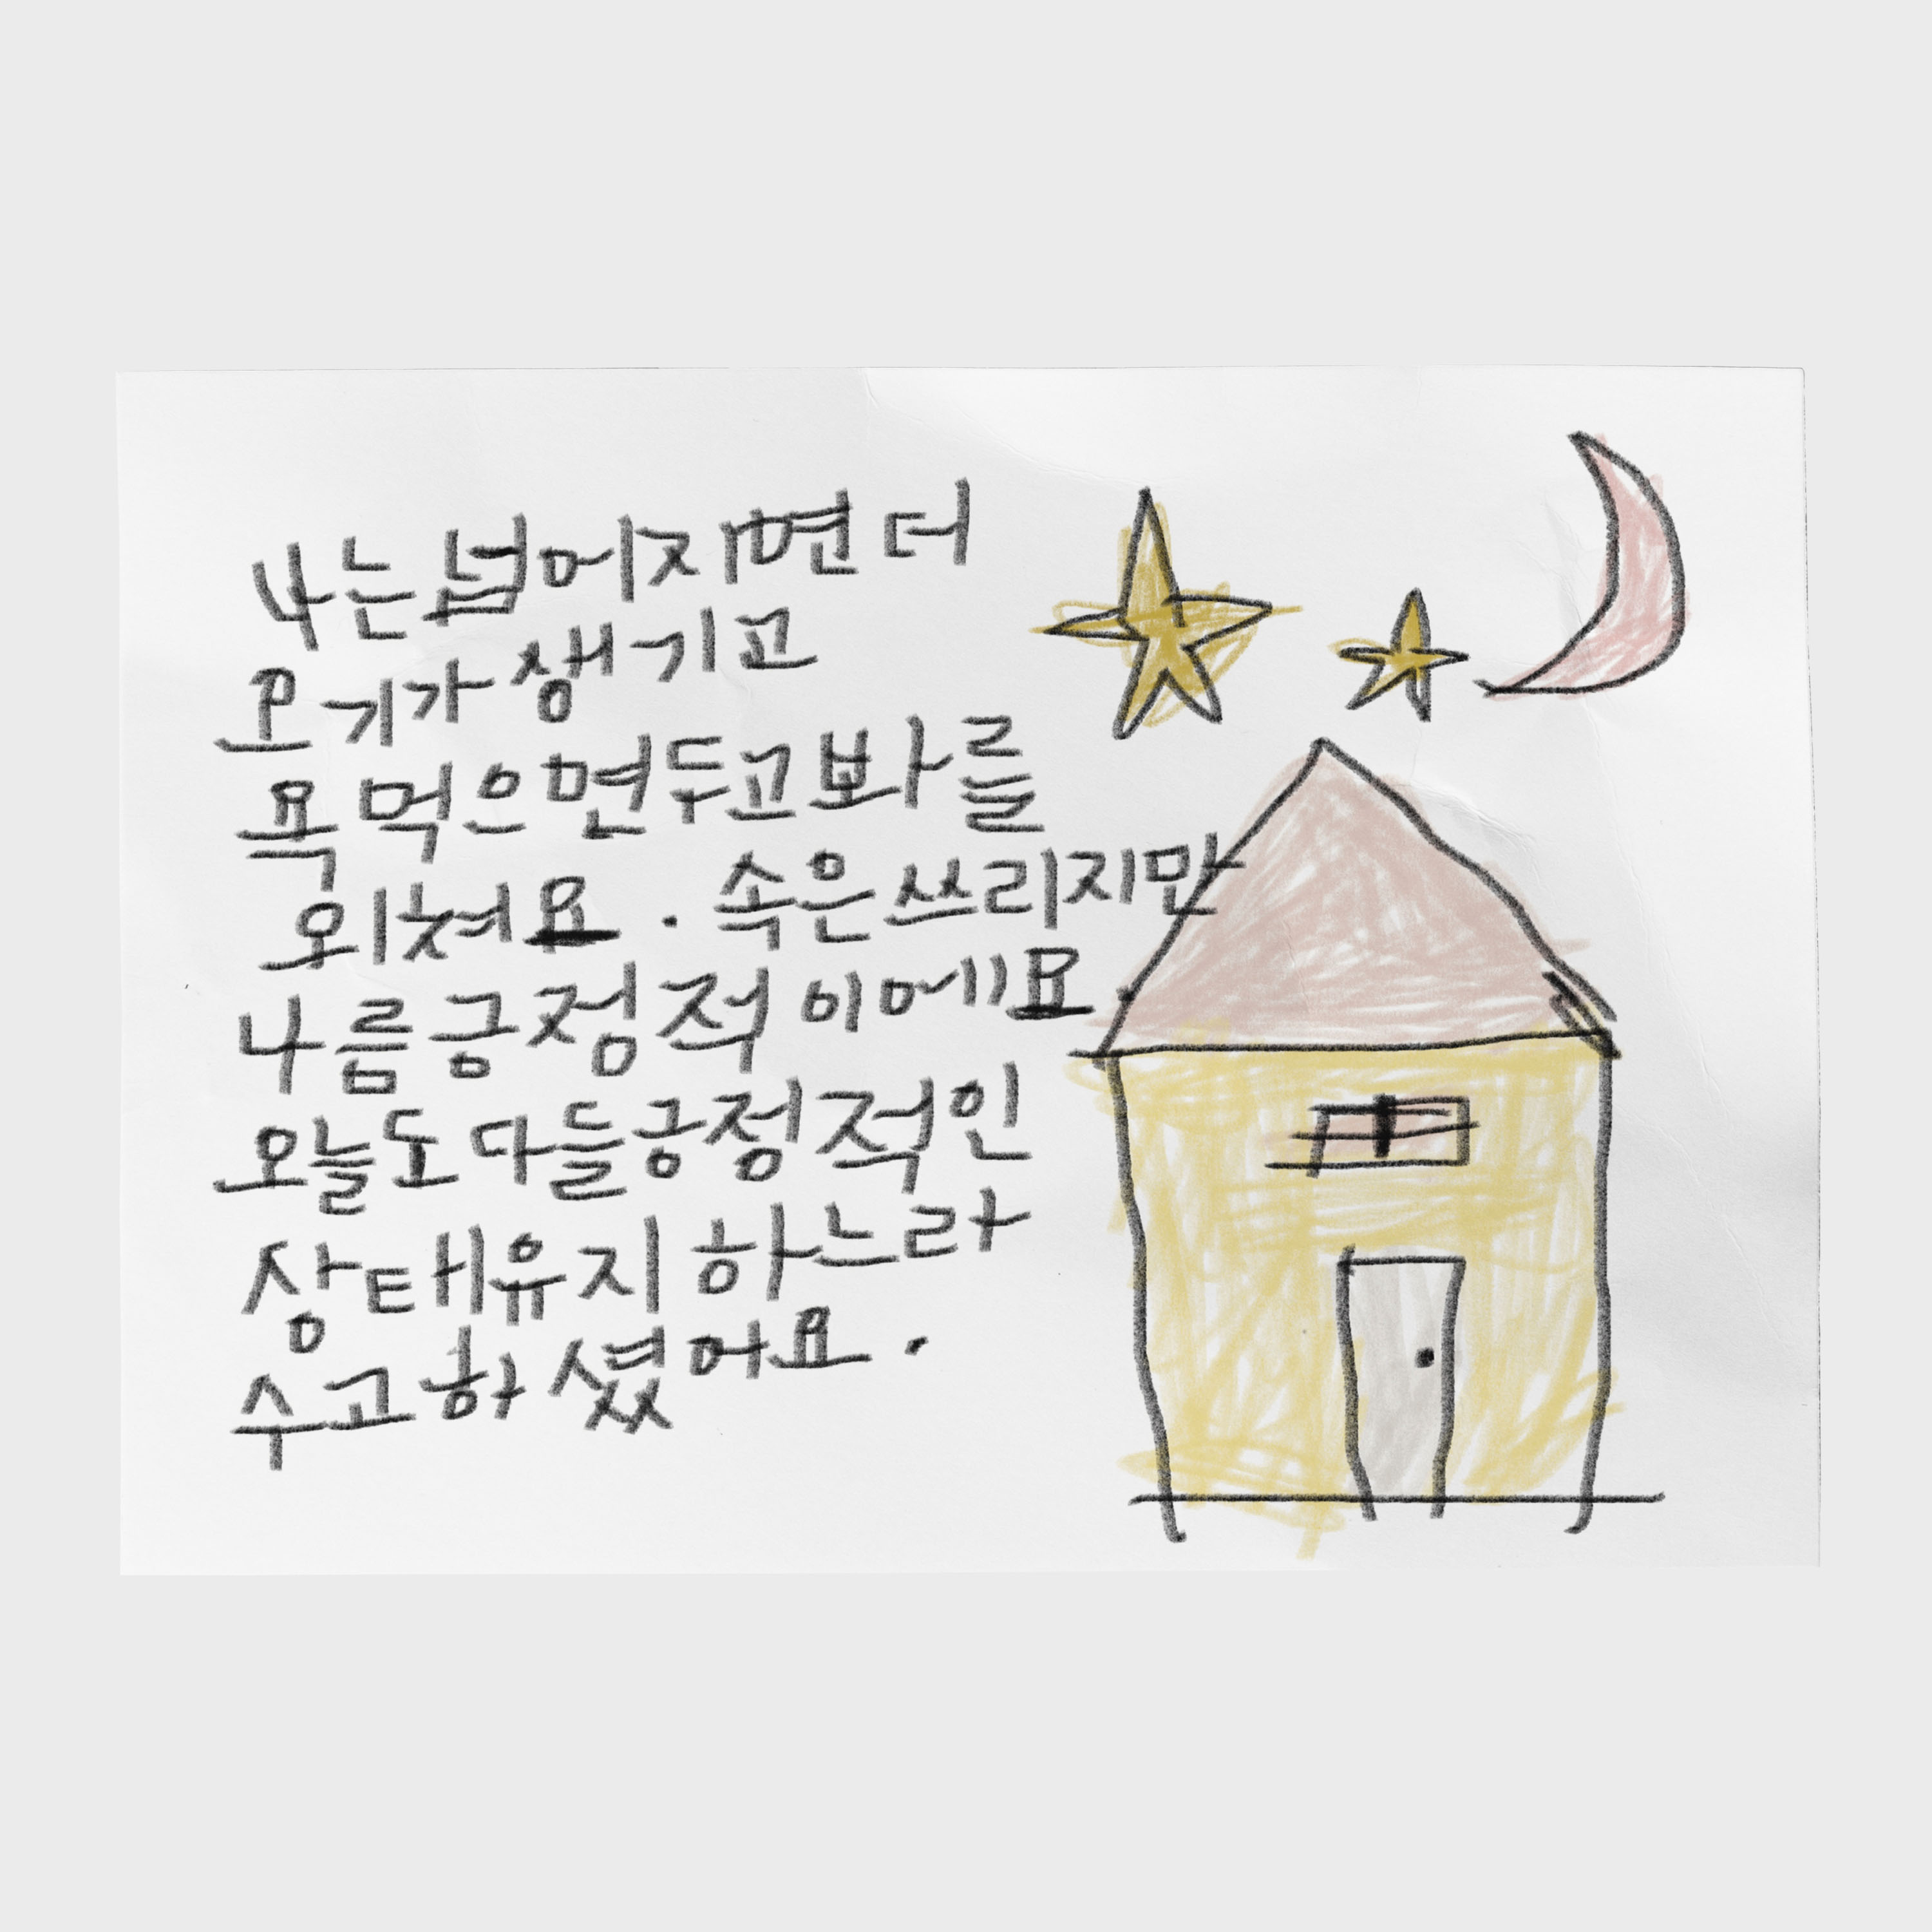 나는 넙어지면 더
오기가 생기고
욕 먹으면 두고봐를
외쳐요. 속은 쓰리지만
나름 긍정적이에요.
오늘도 다들 긍정적인
상태유지 하느라
수고하셨어요.